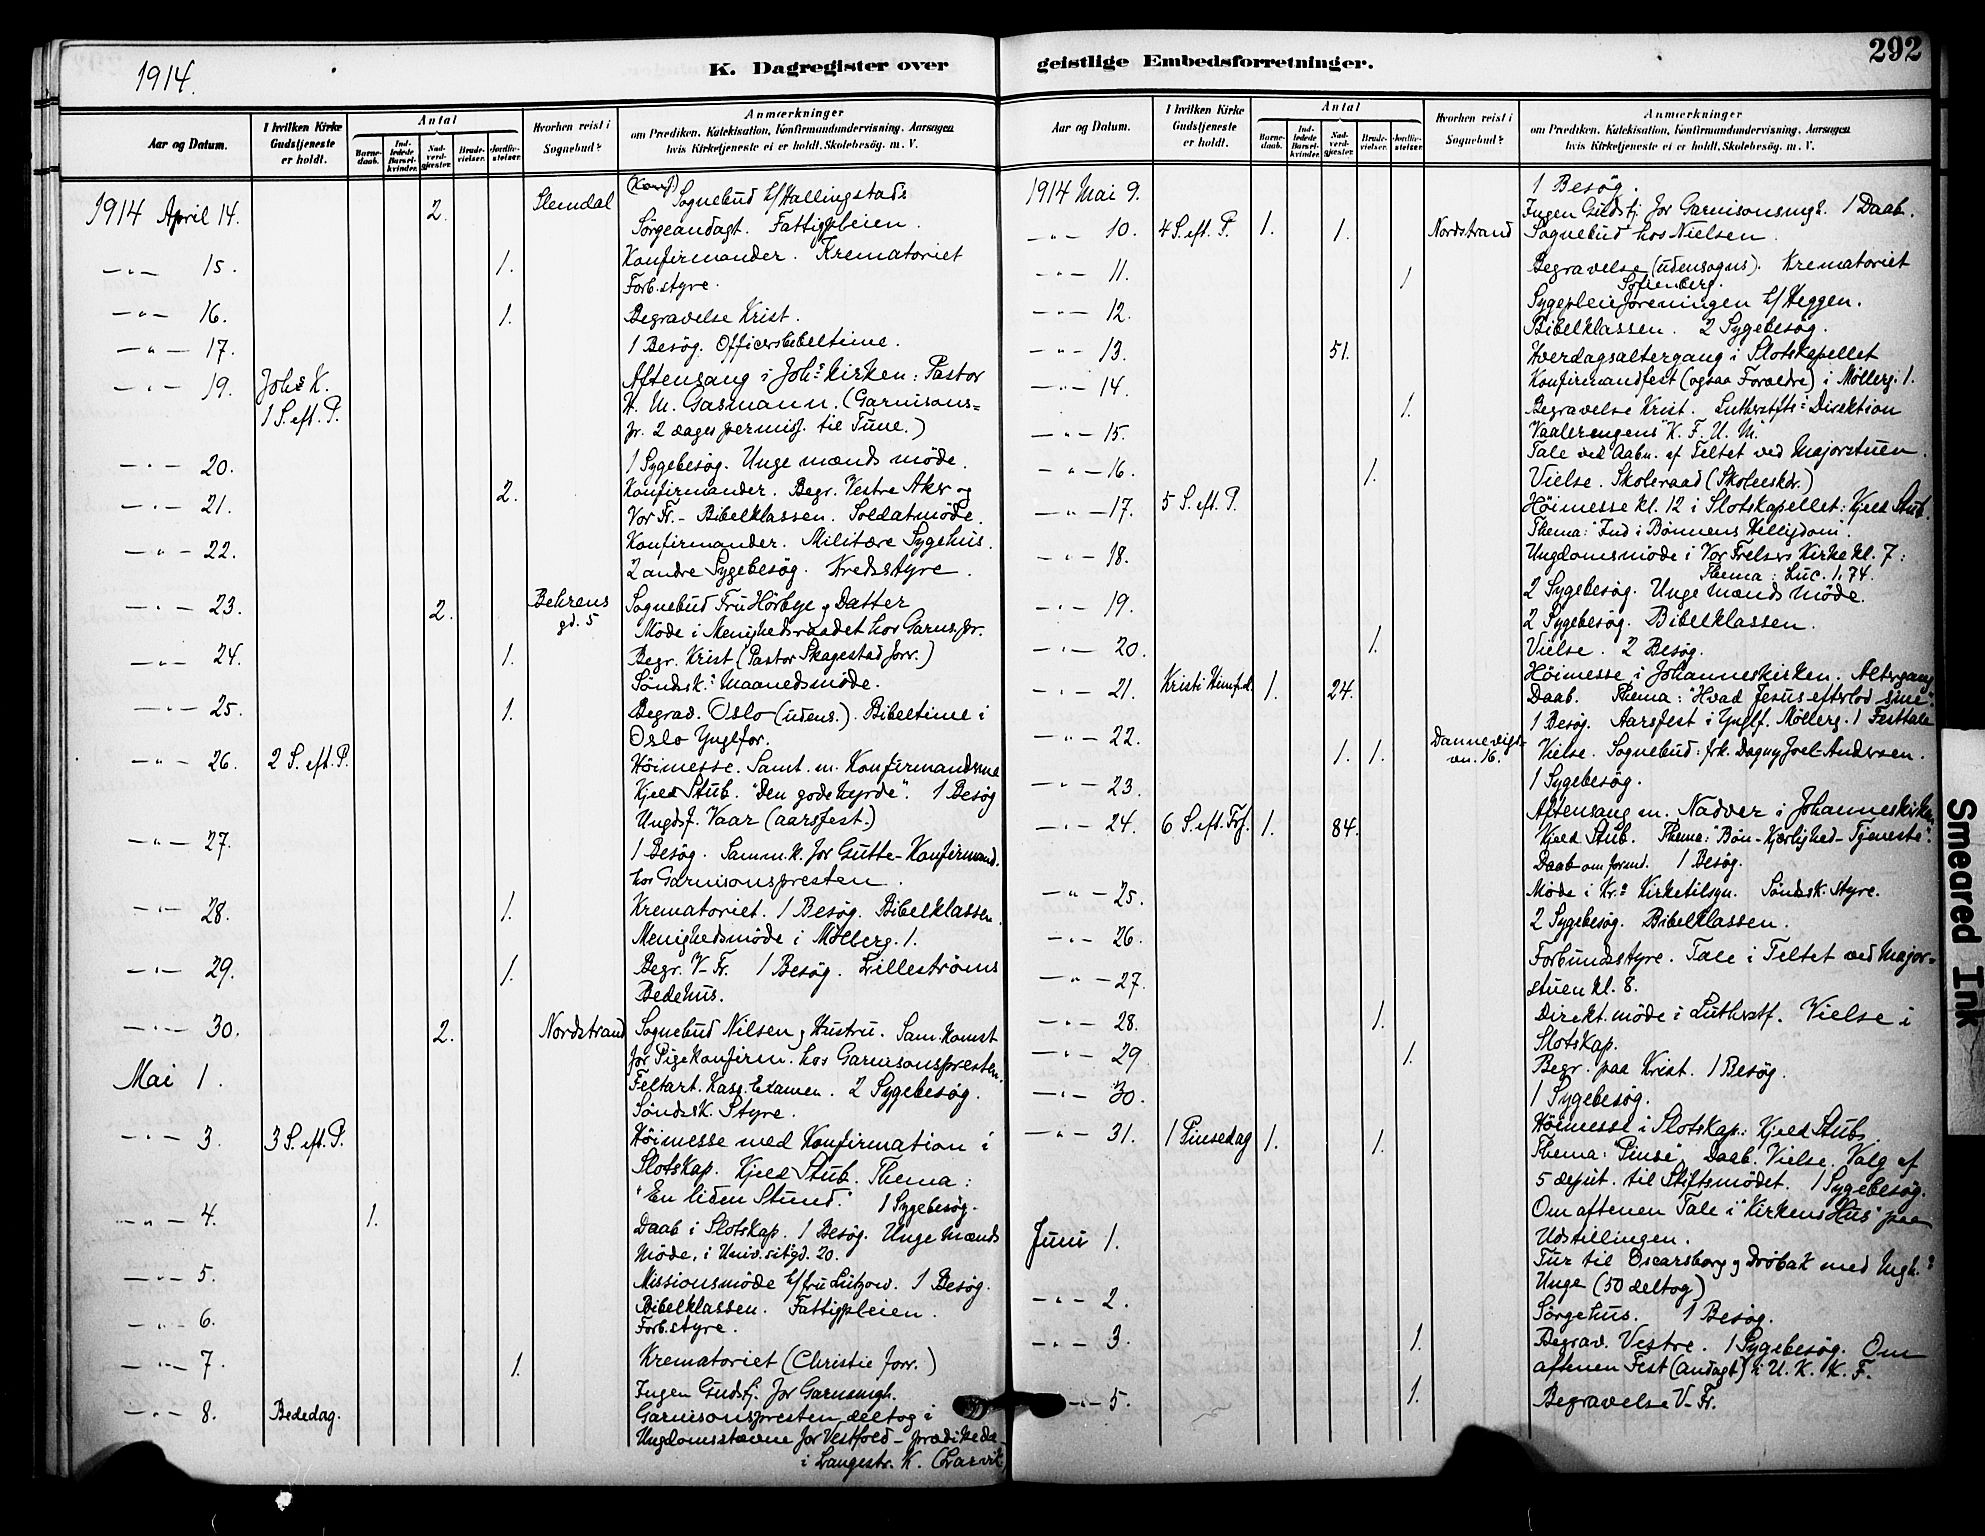 1914.
K. Dagregister over
geistlige Embedsforretninger.
292
Aar og Datum.
I hvilken Kirke Gudstjeneste er holdt.
Antal
Barne-daab.
Ind-ledede Barsel-kvinder.
Nad-verd-gjæster.
Brude-vielser.
Jordfæ-stelser.
Hvorhen reist i Sognebud?
Anmærkninger
om Prædiken, Katekisation, Konfirmandundervisning, Aarsagen
hvis Kirketjeneste ei er holdt, Skolebesøg. m. V.
1914 April 14. 2. Slemdal Sognebud h/ Hallingstad:
Sørgeandagt. Fattigpleien.
—"— 15. 1. Konfirmander. Krematoriet
Forb.styre.
—"— 16. 1. Begravelse Krist.
—"— 17. 1 Besøg. Officersbibeltime.
—"— 19. Johs K. Aftensang i Johs kirken: Pastor
1 S. eft. P. H. M. Gasmann. (Garnisons=
pr. 2 dages permiss. til Tune.)
—"— 20. 1 Sygebesøg. Unge mænds møde.
—"— 21. 2. Konfirmander. Begr. Vestre Aker og
Vor Fr. - Bibelklassen. Soldatmøde.
—"— 22. Konfirmander. Militære Sygehus.
2 andre Sygebesøg. Kredsstyre.
—"— 23. 2. Behrens gd. 5 Sognebud Fru Hörbye og Datter
Møde i Menighedsraadet hos Garns.pr.
—"— 24. 1. Begr. Krist (Pastor Skagestad forr.)
Søndsk.: Maanedsmøde.
—"— 25. 1. Begrav. Oslo (udens.). Bibeltime i
Oslo Ynglfor.
—"— 26. 2 S. eft. P. Høimesse. Samt. m. Konfirmanderne
Kjeld Stub. "Den gode hyrde". 1 Besøg
Ungdsf. Vaar (aarsfest.)
—"— 27. 1 Besøg. Samm.k. for Gutte-Konfirmand.
hos Garnisonspresten.
—"— 28. 1. Krematoriet. 1 Besøg. Bibelklassen.
Menighedsmøde i Mølberg. 1.
—"— 29. 1. Begr. V-Fr. 1 Besøg. Lillestrøms
Bedehus.
—"— 30. 2. Nordstrand Sognebud Nilsen og Hustru. Sam.komst
for Pigekonfirm. hos Garnisonspresten.
Mai 1. Feltart. Kas. Examen. 2 Sygebesøg.
Søndsk. Styre.
—"— 3. 3 S. eft. P. Høimesse med Konfirmation i
Slotskap. Kjeld Stub. Thema:
"En liden Stund." 1 Sygebesøg.
—"— 4. 1. Daab i Slotskap. 1 Besøg. Unge Mænds
Møde, i Univ.sitgd. 20.
—"— 5. Missionsmøde h/ fru Lützow. 1 Besøg.
Bibelklassen. Fattigpleien.
—"— 6. Forb.styre.
—"— 7. 1. Krematoriet (Christie forr.)
—"— 8. Bededag. Ingen Gudstj. for Garnsmgh.
Garnisonspresten deltog i
Ungdomsstævne for Vestfold - prædikeda-
i Langestr. K. (Larvik
Aar og Datum.
I hvilken Kirke Gudstjeneste er holdt.
Antal
Barne-daab.
Ind-ledede Barsel-kvinder.
Nad-verd-gjæster.
Brude-vielser.
Jordfæ-stelser.
Hvorhen reist i Sognebud?
Anmærkninger
om Prædiken, Katekisation, Konfirmandundervisning, Aarsagen
hvis Kirketjeneste ei er holdt, Skolebesøg. m. V.
1914 Mai 9. 1 Besøg.
Ingen Gudstj. for Garnisonsmgh. 1 Daab.
—"— 10. 4 S. eft. P. 1. 1. Nordstrand Sognebud hos Nielsen.
—"— 11. 1 Begravelse (udensogns). Krematoriet
Sofienberg.
—"— 12. Sygepleieforeningen h/ Heggen.
Bibelklassen. 2 Sygebesøg.
—"— 13. 51. Hverdagsaltergang i Slotskapellet
—"— 14. Konfirmandfest (ogsaa Forældre) i Møllerg. 1.
1. Begravelse Krist. Luthersts: Direktion
—"— 15. "Vaalerengens" K. F. U. M.
Tale ved Aabn. af Teltet ved Majorstuen.
—"— 16. 1. Vielse. Skoleraad (Skoleeskdr.)
—"— 17. 5 S. eft. P. Høimesse kl. 12 i Slotskapellet: Kjeld Stub.
Thema: "Ind i Bønnens Helligdom".
—"— 18. Ungdomsmøde i Vor Frelsers Kirke kl. 7:
Thema: Luc. 1, 74.
2 Sygebesøg. Unge Mænds Møde.
—"— 19. 2 Sygebesøg. Bibelklassen.
—"— 20. 1. Vielse. 2 Besøg.
—"— 21. Kristi Himf.d. 1. 24. Høimesse i Johanneskirken. Altergang
Daab. Thema: "Hvad Jesus efterlod sine".
1 Besøg. Aarsfest i Ynglf. Møllerg. 1 Festtale
—"— 22. 1. 1. Dannevigs-vn. 16. Vielse. Sognebud: frk. Dagny Joel-Andersen.
—"— 23. 1 Sygebesøg.
—"— 24. 6 S. eft. Trf. 1. 84. Aftensang m. Nadver i Johanneskirken
Kjeld Stub. Thema: "Bøn - Kjærlighed - Tjeneste".
Daab om formd. 1 Besøg.
—"— 25. Møde i Kr.: Kirketilsyn. Søndsk. styre.
2 Sygebesøg. Bibelklassen.
—"— 26.
Forbundsstyre. Tale i Teltet ved Major=
—"— 27. stuen kl. 8.
—"— 28. 1. Direkt. møde i Lutherstf. Vielse i
Slotskap.
—"— 29. 1. Begr. paa Krist. 1 Besøg.
—"— 30. 1 Sygebesøg.
—"— 31. 1 Pinsedag 1. 1. Høimesse i Slotskap.: Kjeld Stub.
Thema: "Pinse". Daab. Vielse. Valg af
5 deput. til Stiftsmødet. 1 Sygebesøg.
Om aftenen Tale i "Kirkens Hus" paa
Udstillingen.
Juni 1. Tur til Oscarsborg og Drøbak med Mgh.:
Unge (50 deltog)
—"— 2. Sørgehus. 1 Besøg.
—"— 3. 1. Begrav. Vestre. 1 Sygebesøg. Om
aftenen Fest (andagt) i U. K. K. F.
—"— 5. 1. Begravelse V-Fr.
Smeared Ink